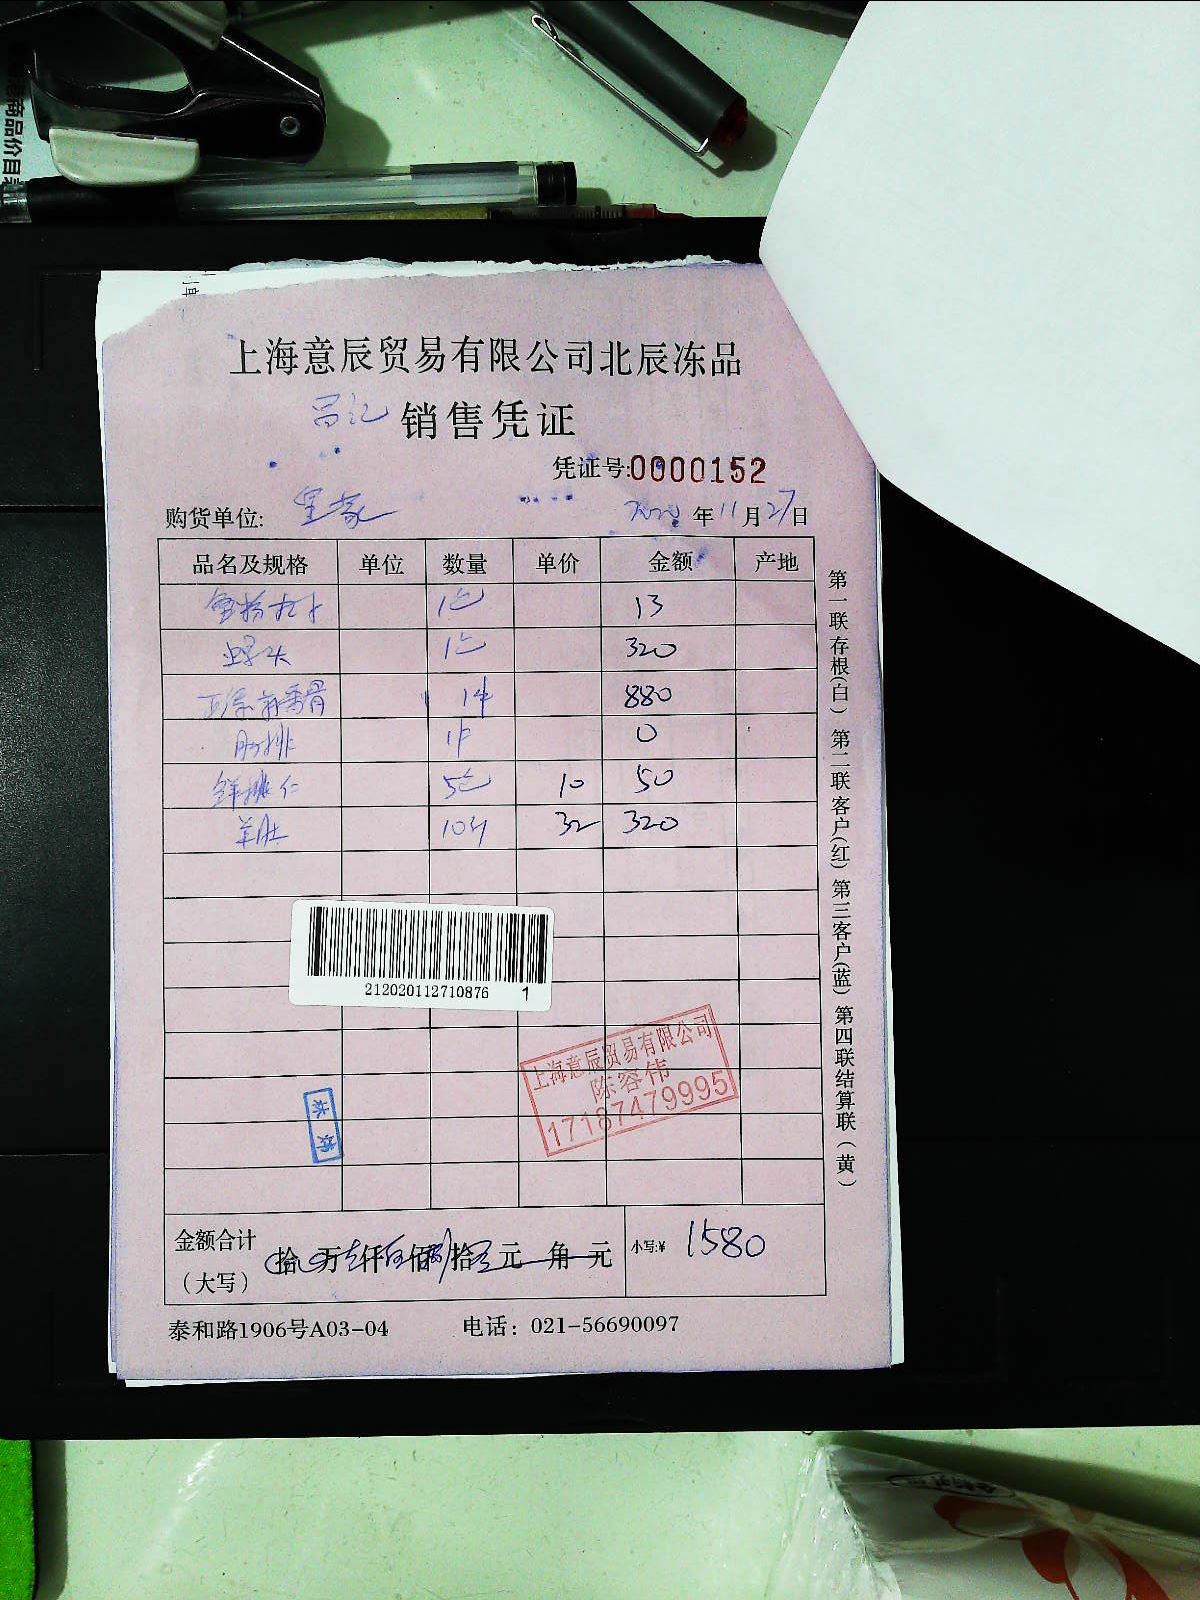 商品价目
上海意辰贸易有限公司北辰冻品
昌记 销售凭证
凭证号:0000152
购货单位: 皇家 2020 年 11 月 27 日
品名及规格 单位 数量 单价 金额 产地
1包 13
螺头 1包 320
1件 880
肋排 1件 0
鲜桃仁 5包 10 50
羊肚 10斤 32 320
212020112710876 1
上海意辰贸易有限公司
陈容伟
17187479995
金额合计
(大写)
拾 万 仟 佰 拾 元 角 元
小写:¥ 1580
泰和路1906号A03-04 电话: 021-56690097
第一联存根(白) 第二联客户(红) 第三客户(蓝) 第四联结算联(黄)